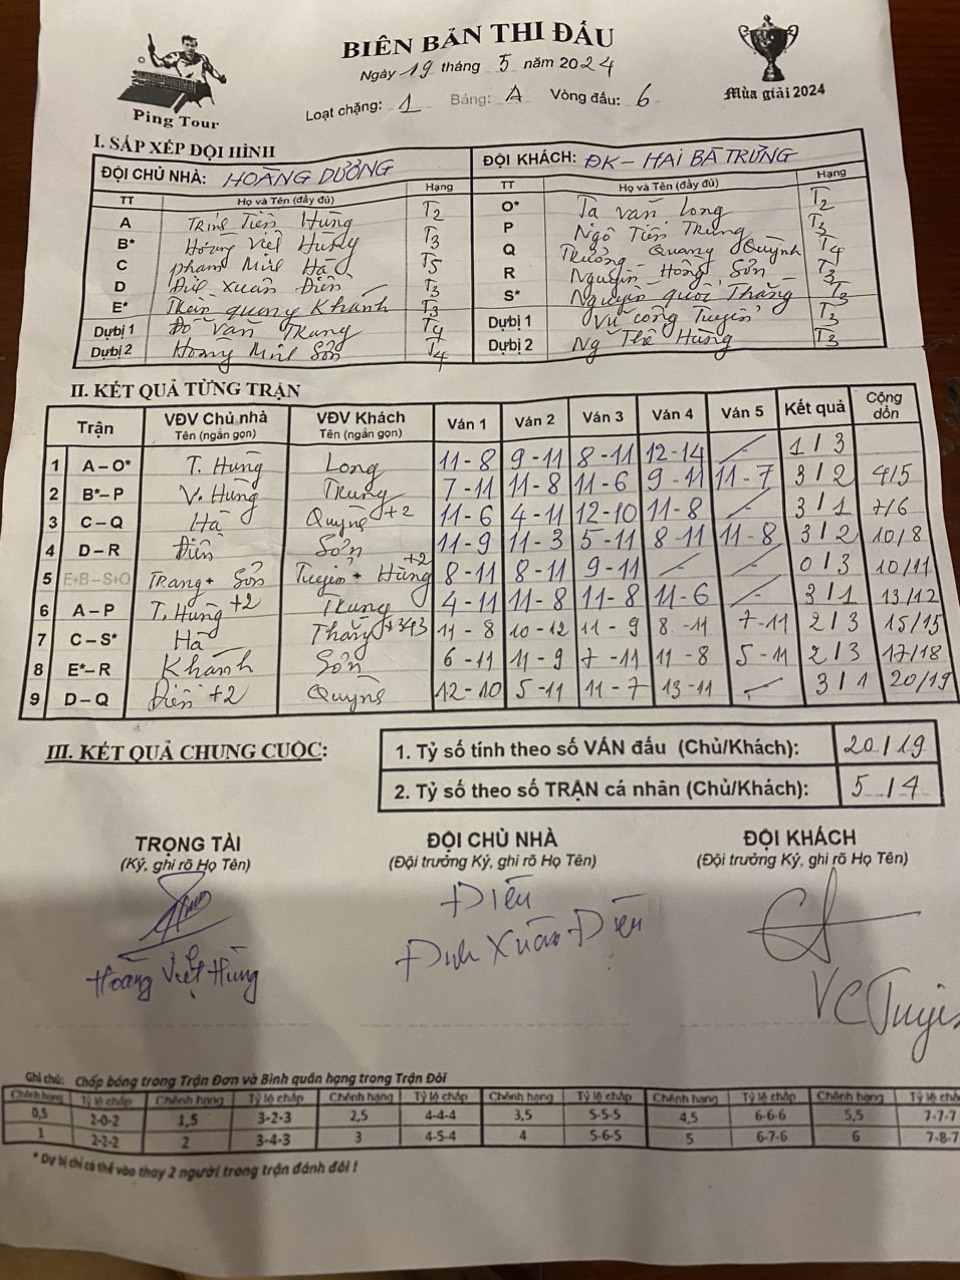 BIÊN BẢN THI ĐẤU
Ngày 19 tháng 5 năm 2024
Loạt chặng: 1 Bảng: A Vòng đấu: 6
Ping Tour
Mùa giải 2024
I. SẮP XẾP ĐỘI HÌNH
ĐỘI CHỦ NHÀ: HOÀNG DƯƠNG ĐỘI KHÁCH: ĐK - HAI BÀ TRƯNG
TT Họ và Tên (đầy đủ) Hạng TT Họ và Tên (đầy đủ) Hạng
A Trịnh Tiến Hùng T2 O* Tạ Văn Long T2
B* Hoàng Việt Hùng T3 P Ngô Tiến Trung T3
C Phạm Minh Hà T5 Q Trương Quang Quỳnh T4
D Đinh Xuân Diên T3 R Nguyễn Hồng Sơn T3
E* Trần Quang Khánh T3 S* Nguyễn Quốc Thắng T3
Dựbị 1 Đỗ Văn Trung T4 Dựbị 1 Vũ Công Tuyên T3
Dựbị 2 Hoàng Minh Sơn T4 Dựbị 2 Ng Thế Hùng T3
II. KẾT QUẢ TỪNG TRẬN
Trận VĐV Chủ nhà Tên (ngắn gọn) VĐV Khách Tên (ngắn gọn) Ván 1 Ván 2 Ván 3 Ván 4 Ván 5 Kết quả Cộng dồn
1 A – O* T. Hùng Long 11 - 8 9 - 11 8 - 11 12 - 14 - 1 / 3
2 B* – P V. Hùng Trung 7 - 11 11 - 8 11 - 6 9 - 11 11 - 7 3 / 2 4/5
3 C – Q Hà Quỳnh +2 11 - 6 4 - 11 12 - 10 11 - 8 - 3 / 1 7/6
4 D – R Diên Sơn 11 - 9 11 - 3 5 - 11 8 - 11 11 - 8 3 / 2 10/8
5 E+B – S+O Trang + Sơn Tuyên + Hùng +2 8 - 11 8 - 11 9 - 11 - - 0 / 3 10/11
6 A – P T. Hùng +2 Trung 4 - 11 11 - 8 11 - 8 11 - 6 - 3 / 1 13/12
7 C – S* Hà Thắng +343 11 - 8 10 - 12 11 - 9 8 - 11 7 - 11 2 / 3 15/15
8 E* – R Khánh Sơn 6 - 11 11 - 9 7 - 11 11 - 8 5 - 11 2 / 3 17/18
9 D – Q Diên +2 Quỳnh 12 - 10 5 - 11 11 - 7 13 - 11 - 3 / 1 20/19
III. KẾT QUẢ CHUNG CUỘC:
1. Tỷ số tính theo số VÁN đấu (Chủ/Khách): 20 / 19
2. Tỷ số theo số TRẬN cá nhân (Chủ/Khách): 5 / 4
TRỌNG TÀI ĐỘI CHỦ NHÀ ĐỘI KHÁCH
(Ký, ghi rõ Họ Tên) (Đội trưởng Ký, ghi rõ Họ Tên) (Đội trưởng Ký, ghi rõ Họ Tên)
Diên
Hoàng Việt Hùng Đinh Xuân Diên VC Tuyên
Ghi chú: Chấp bóng trong Trận Đơn và Bình quân hạng trong Trận Đôi
Chênh hạng Tỷ lệ chấp Chênh hạng Tỷ lệ chấp Chênh hạng Tỷ lệ chấp Chênh hạng Tỷ lệ chấp Chênh hạng Tỷ lệ chấp Chênh hạng Tỷ lệ chấp
0,5 2-0-2 1,5 3-2-3 2,5 4-4-4 3,5 5-5-5 4,5 6-6-6 5,5 7-7-7
1 2-2-2 2 3-4-3 3 4-5-4 4 5-6-5 5 6-7-6 6 7-8-7
* Dự bị chỉ có thể vào thay 2 người trong trận đánh đôi !